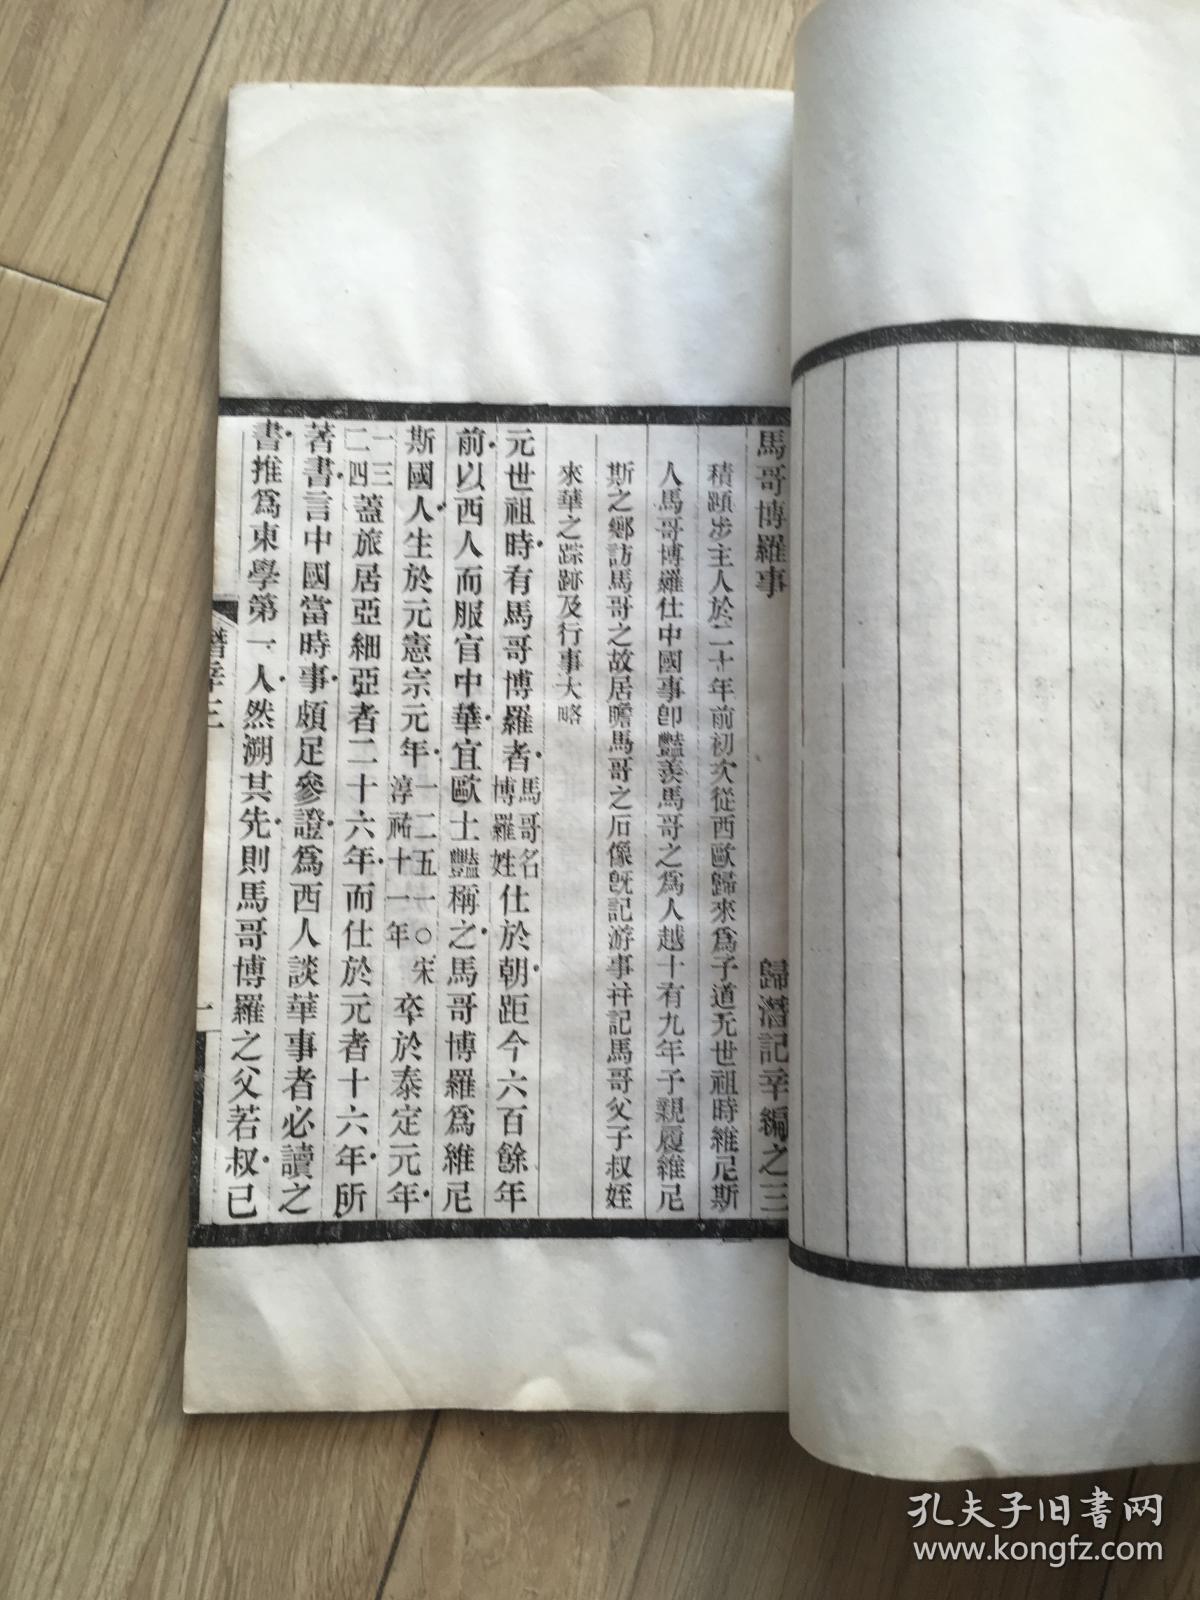 馬哥博羅事 歸潛記辛編之三
積蹞步主人於二十年前初次從西歐歸來爲予道元世祖時維尼斯
人馬哥博羅仕中國事卽豔羨馬哥之爲人越十有九年予親履維尼
斯之鄉訪馬哥之故居瞻馬哥之石像既記游事幷記馬哥父子叔姪
來華之踪跡及行事大略
元世祖時有馬哥博羅者馬哥名博羅姓仕於朝距今六百餘年
前以西人而服官中華宜歐士豔稱之馬哥博羅爲維尼
斯國人生於元憲宗元年一二五一〇宋淳祐十一年卒於泰定元年
一三二四蓋旅居亞細亞者二十六年而仕於元者十六年所
著書言中國當時事頗足參證爲西人談華事者必讀之
書推爲東學第一人然溯其先則馬哥博羅之父若叔已
潛辛三
一
孔夫子旧書网
www.kongfz.com